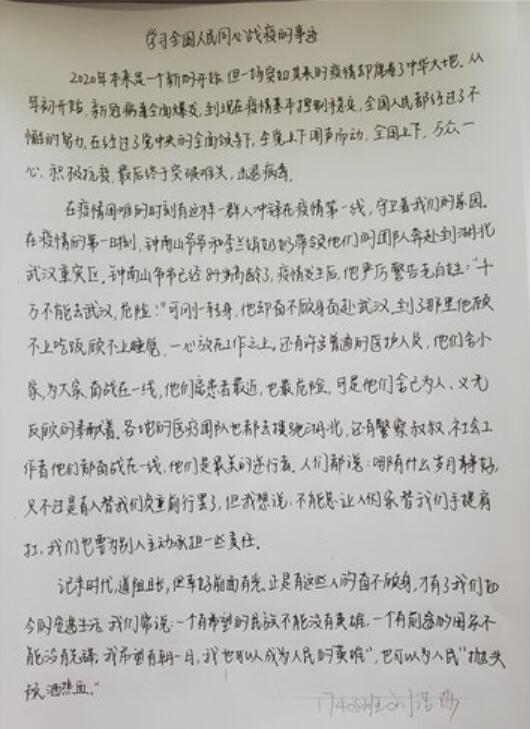 学习全国人民同心战疫的事迹
2020年本来是一个新的开始,但一场突如其来的疫情却席卷了中华大地。从
年初开始,新冠病毒全面爆发,到现在疫情基本控制稳定,全国人民都经过了不
懈的努力,在经过了党中央的全面领导下,全党上下闻声而动,全国上下,万众一
心,积极抗疫,最后终于突破难关,击退病毒。
在疫情困难的时刻有这样一群人冲锋在疫情第一线,守卫着我们的家园。
在疫情的第一时刻,钟南山爷爷和李兰娟奶奶带领他们的团队奔赴到湖北
武汉重灾区。钟南山爷爷已经84岁高龄了,疫情发生后,他严厉警告老百姓:“千
万不能去武汉,危险!”可刚一转身,他却奋不顾身奔赴武汉,到了那里他顾
不上吃饭,顾不上睡觉,一心放在工作之上。还有许多普通的医护人员,他们舍小
家,为大家,奋战在一线,他们离患者最近,也最危险,可是他们舍己为人、义无
反顾的奉献着。各地的医疗团队也都去援驰湖北,还有警察叔叔,社会工
作者他们都奋战在一线,他们是最美的逆行者。人们都说:哪有什么岁月静好,
只不过是有人替我们负重前行罢了,但我想说,不能总让人家替我们手提肩
扛,我们也要为别人主动承担一些责任。
时代,道阻且长,但幸好前面有光。正是有这些人的奋不顾身,才有了我们如
今的生活。我们常说:一个有希望的民族不能没有英雄,一个有前途的国家不
能没有先锋。我希望有朝一日,我也可以成为人民的英雄”,也可以为人民“抛头
颅,洒热血。”
1740班刘浩